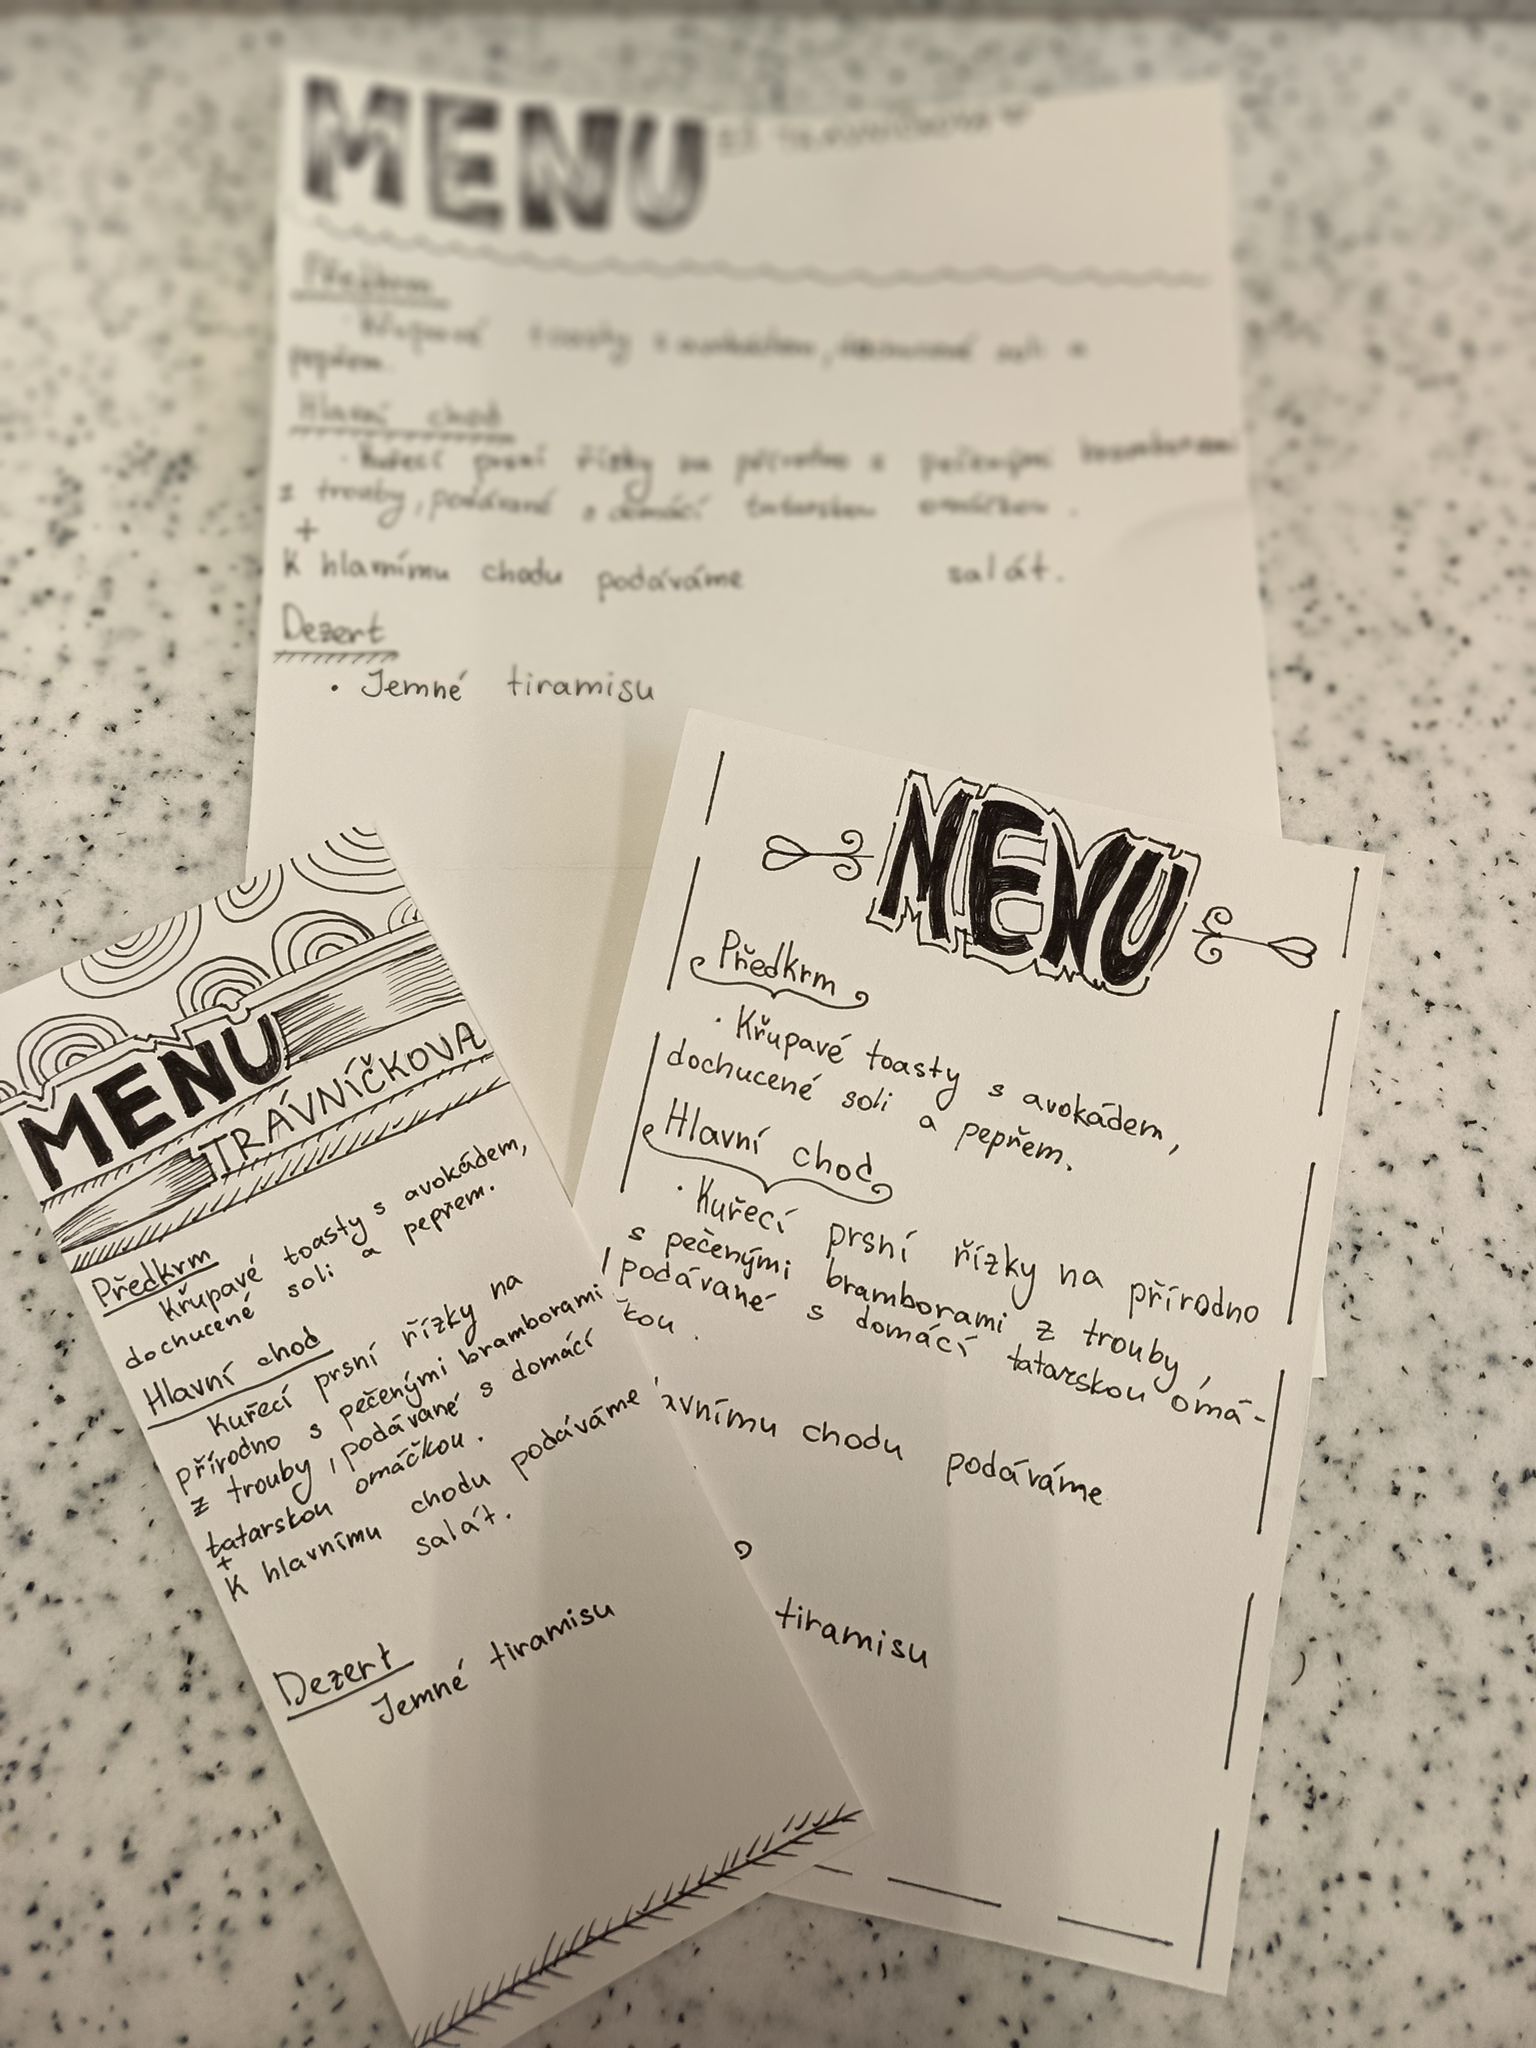 MENU
Předkrm
· Křupavé toasty s avokádem, dochucené soli a
pepřem.
Hlavní chod
· Kuřecí prsní řízky na přírodno s pečenými bramborami
z trouby, podávané s domácí tatarskou omáčkou.
+
K hlavnímu chodu podáváme salát.
Dezert
· Jemné tiramisu
MENU
Předkrm
· Křupavé toasty s avokádem,
dochucené soli a pepřem.
Hlavní chod
· Kuřecí prsní řízky na přírodno
s pečenými bramborami z trouby,
podávané s domácí tatarskou omá-
čkou.
avnímu chodu podáváme
tiramisu
MENU
TRÁVNÍČKOVA
Předkrm
Křupavé toasty s avokádem,
dochucené soli a pepřem.
Hlavní chod
Kuřecí prsní řízky na
přírodno s pečenými bramborami
z trouby, podávané s domácí
tatarskou omáčkou.
+
K hlavnímu chodu podáváme
salát.
Dezert
Jemné tiramisu